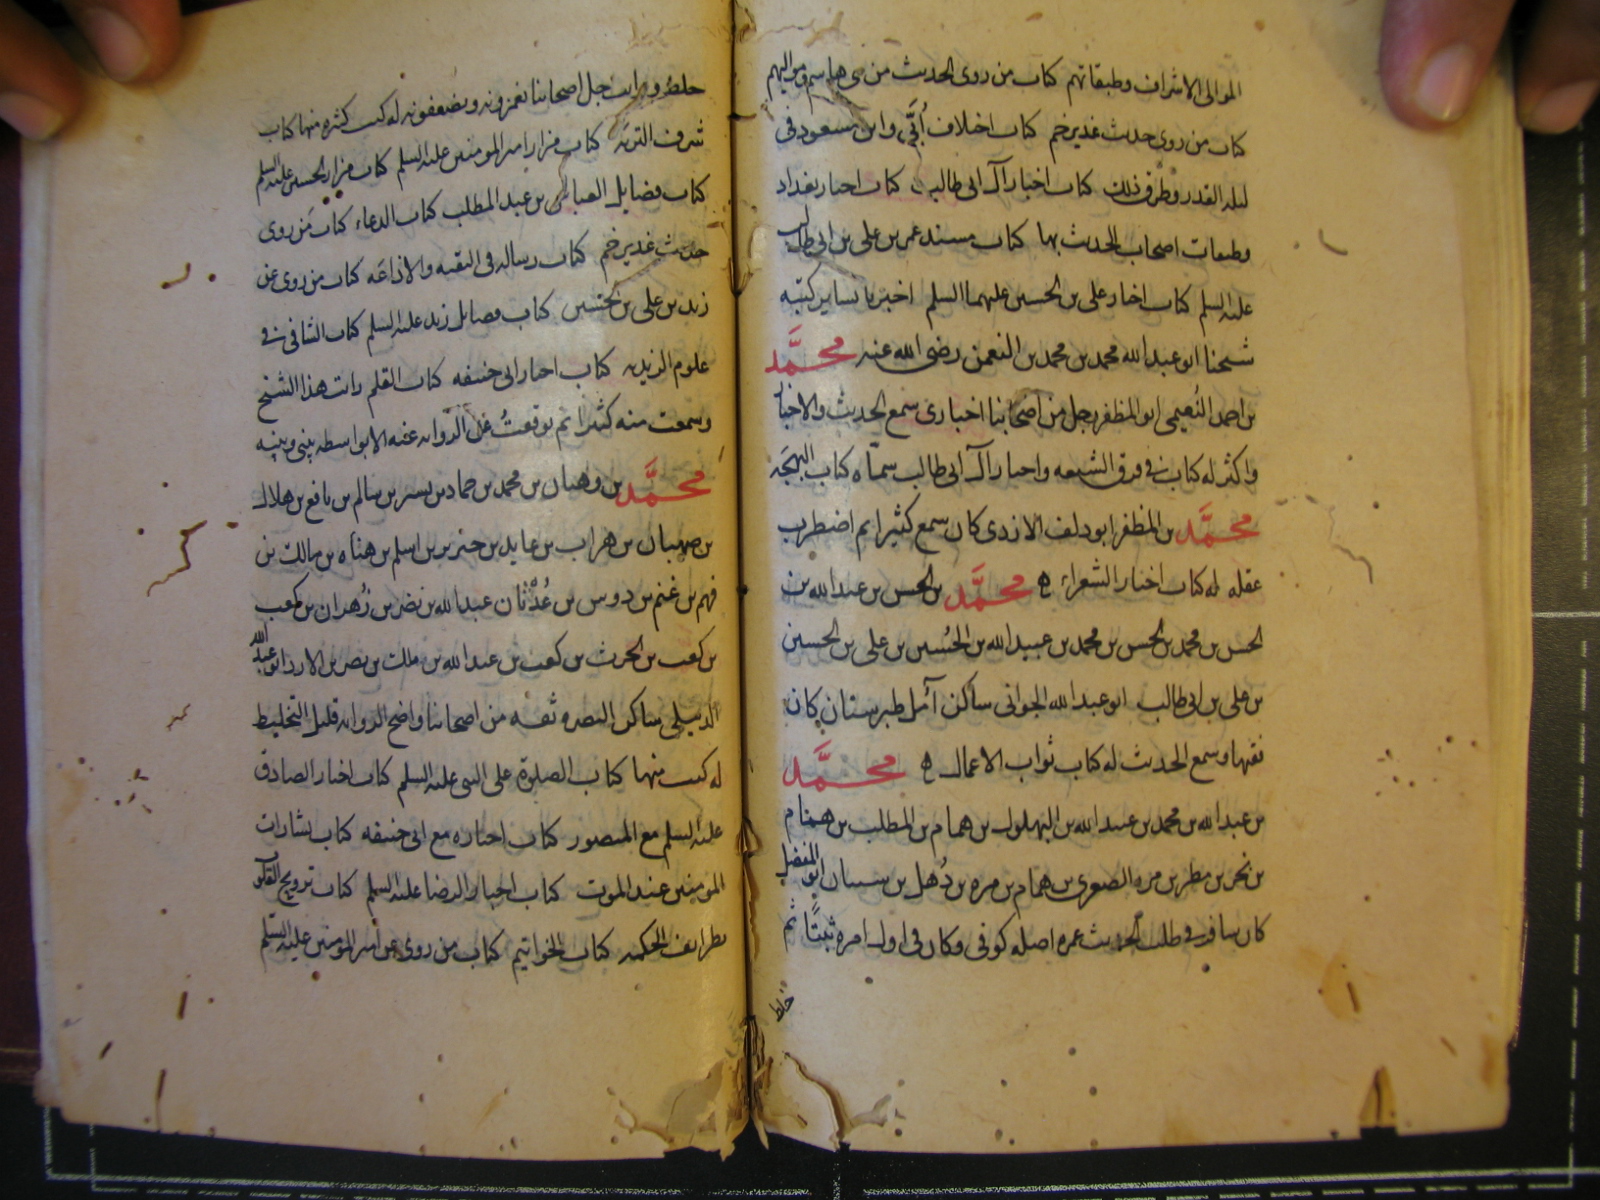 الموالى الاشراف وطبقاتهم كتاب من روى الحديث من بنى هاشم ومواليهم
كتاب من روى حديث غدير خم كتاب اختلاف اُبَّى وابن مسعود فى
ليله القدر وطرق ذلك كتاب اخبار آل ابى طالب كتاب اخبار بغداد
وطبقات اصحاب الحديث بها كتاب مسند عمر بن على بن ابى طالب
عليه السلم كتاب اخبار على بن الحسين عليهما السلم اخبرنا بساير كتبه
شيخنا ابو عبد الله محمد بن محمد بن النعمن رضى الله عنه محمَّد
بن احمد النُعيمى ابو المظفر رجل من اصحابنا اخبارى سمع الحديث والاخبار
واكثر له كتاب فى فرق الشيعه واخبار آل ابى طالب سمّاه كتاب البهجَه
محمَّد بن المظفر ابو دلف الازدى كان سمع كثيرا ثم اضطرب
عقله له كتاب اخبار الشعراء ه محمَّد بن الحسن بن عبد الله بن
الحسن بن محمد بن الحسن بن محمد بن عبيد الله بن الحُسين بن على بن الحسين
بن على بن ابى طالب ابو عبد الله الجوانى ساكن آمُل طبرستان كان
فقيها وسمع الحديث له كتاب ثواب الاعمال ه محمَّد
بن عبد الله بن محمد بن عبيد الله بن البهلول بن همام بن المطلب بن همام
بن بحر بن مطر بن مره الصغرى بن همام بن مره بن ذُهل بن شيبان ابو المفضل
كان سافر فى طلب الحديث عمره اصله كوفى وكان فى اول امره ثبتًا ثم
خلط
خلط ورايت جل اصحابنا يغمزونه ويضعفونه له كتب كثيره منها كتاب
شرف التربَه كتاب مزار امير المومنين عليه السلم كتاب مزار الحسين عليه السلم
كتاب فضايل العباس بن عبد المطلب كتاب الدعاء كتاب مَن روى
حديث غدير خم كتاب رساله فى التقيه والاذاعَه كتاب من روى عن
زيد بن على بن حسين كتاب فضائل زيد عليه السلم كتاب الشافى فى
علوم الزيديه كتاب اخبار ابى حنيفه كتاب القلم رايت هذا الشيخ
وسمعت منه كثيرا ثم توقفتُ عن الروايه عنه الا بواسطه بينى وبينه
محمَّد بن وهبان بن محمد بن حماد بن بسر بن سالم بن نافع بن هلال
بن صهبان بن هراب بن عايد بن خنزير بن اسلم بن هناه بن مالك بن
فهم بن غنم بن دوس بن عُدْثان عبد الله بن نضر بن زُهران بن كعب
بن كعب بن الحرث بن كعب بن عبد الله بن ملك بن نصر بن الازد ابو عبد الله
الدبيلى ساكن البصره ثقه من اصحابنا واضح الروايه قليل التخليط
له كتب منها كتاب الصلوة على النبى عليه السلم كتاب اخبار الصادق
عليه السلم مع المنصور كتاب اخباره مع ابى حنيفه كتاب بشارات
المومنين عند الموت كتاب اخبار الرضا عليه السلم كتاب ترويح القلوب
بطرايف الحكمه كتاب الخواتيم كتاب من روى عن امير المومنين عليه السلم